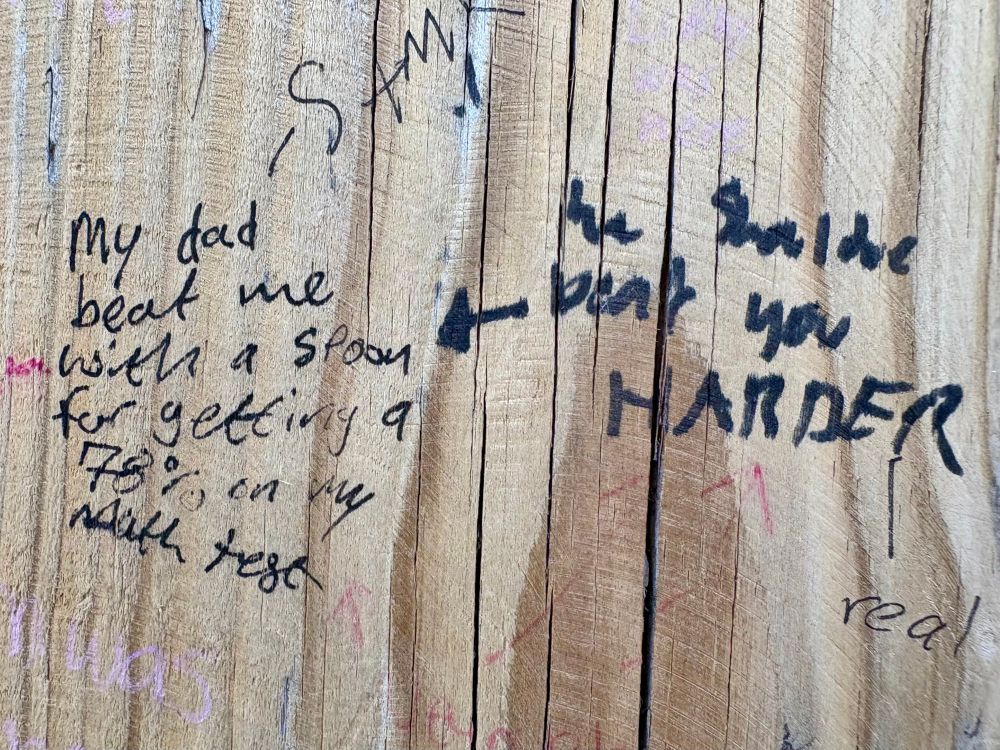 S + M
My dad
beat me
with a spoon
for getting a
78% on my
Math test
he shouldve
beat you
HARDER
real
was